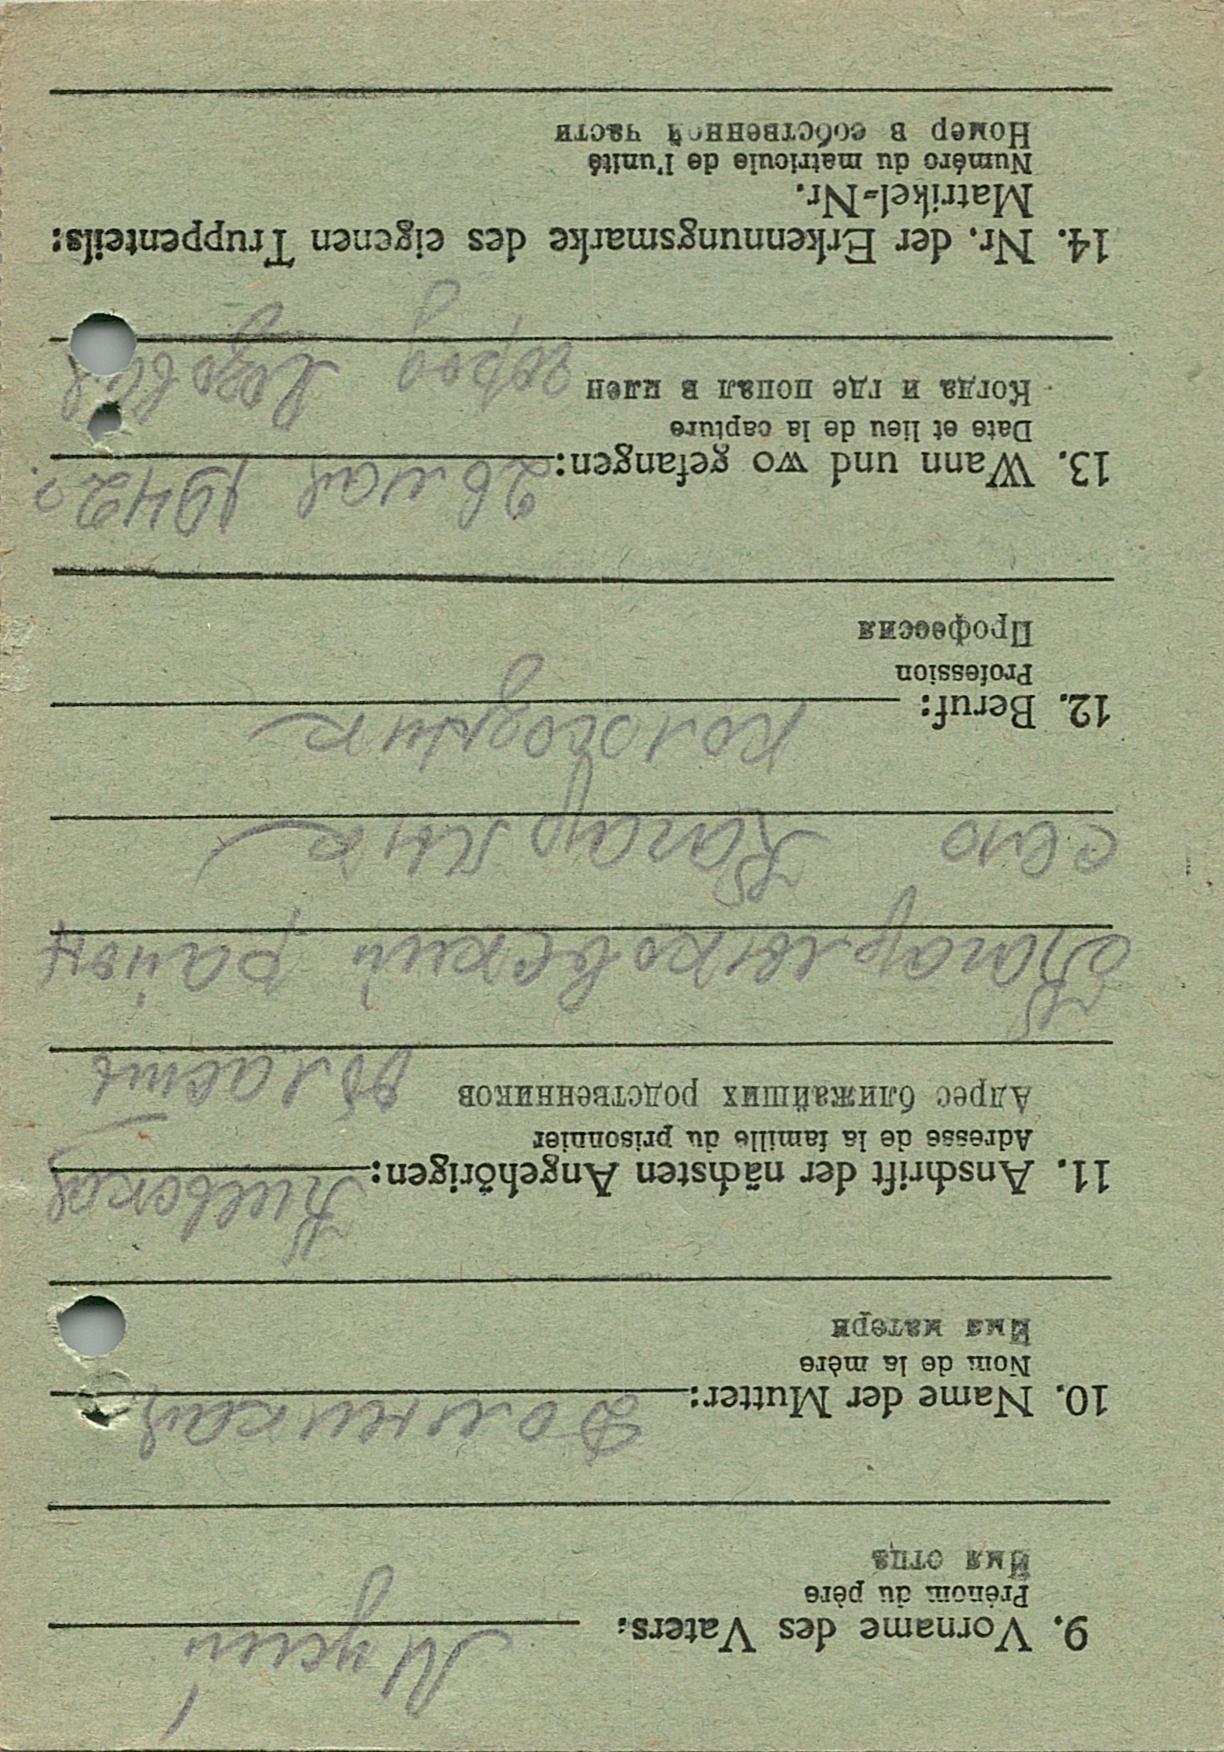 9. Vorname des Vaters: Мусий
Prénom du père
Имя отца
10. Name der Mutter: Доминикая
Nom de la mère
Имя матери
11. Anschrift der nächsten Angehörigen: Киевская
Adresse de la famille du prisonnier
Адрес ближайших родственников область
район
село
12. Beruf:
Profession
Профессия
13. Wann und wo gefangen: 26 мая 1942г.
Date et lieu de la capture
Когда и где попал в плен город Лозовая
14. Nr. der Erkennungsmarke des eigenen Truppenteils:
Matrikel-Nr.
Numéro du matricule de l'unité
Номер в собственной части